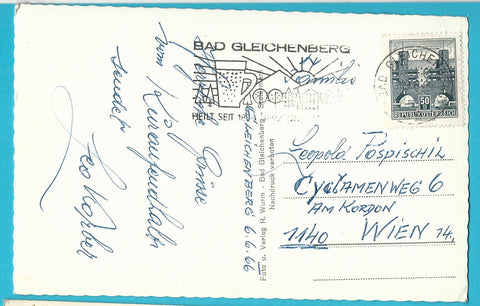 BAD GLEICHENBERG
HEILT SEIT
BAD GLEICHEN
50
REPUBLIK ÖSTERREICH
Herzliche Grüsse
vom Kuraufenthalt
sendet
GLEICHENBERG 6.6.66
Foto u. Verlag R. Wurm - Bad Gleichenberg
Nachdruck verboten
Familie
Leopold Pospischil
CYCLAMENWEG 6
AM KORDON
1140 WIEN 14.,